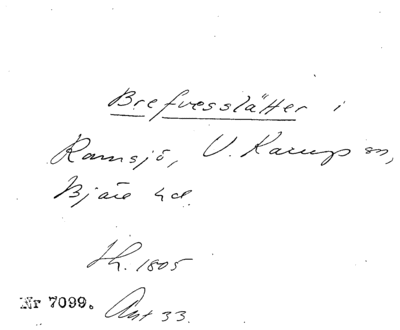 Brefvesslätter i
Ramsjö, V. Karup sn,
Bjäre hd.
Ih. 1805
Nr 7099. Ant 33.